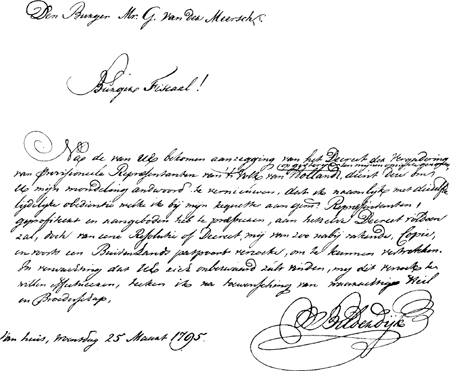 Den Burger Mr. G. van der Meersch.
Burger Fiscaal!
Na de van UE bekomen aanzegging van het Decreet der Vergadering
van provisioneele Repræsentanten van 't volk van Holland, dient deze om
UE mijn mondeling andwoord te vernieuwen, dat ik namenlijk met dezelfde
lijdelijke obedientie welke ik bij mijn requeste aan Repræsentanten
geprofiteerd en aangeboden heb te præsteeren, aan hetzelve Decreet voldoen
zal, doch van eene Resolutie of Decreet mij van zoo nabij rakende, Copie,
en voorts een Buitenlands paspoort verzoeke, om te kunnen vertrekken.
In verwachting dat UE zich onbezwaard zult vinden, mij dit verzoek te
willen effectueeren, teeken ik na toewensching van waarachtig Heil
en Broederschap,
Van huis, woensdag 25 Maart 1795.
Bilderdijk